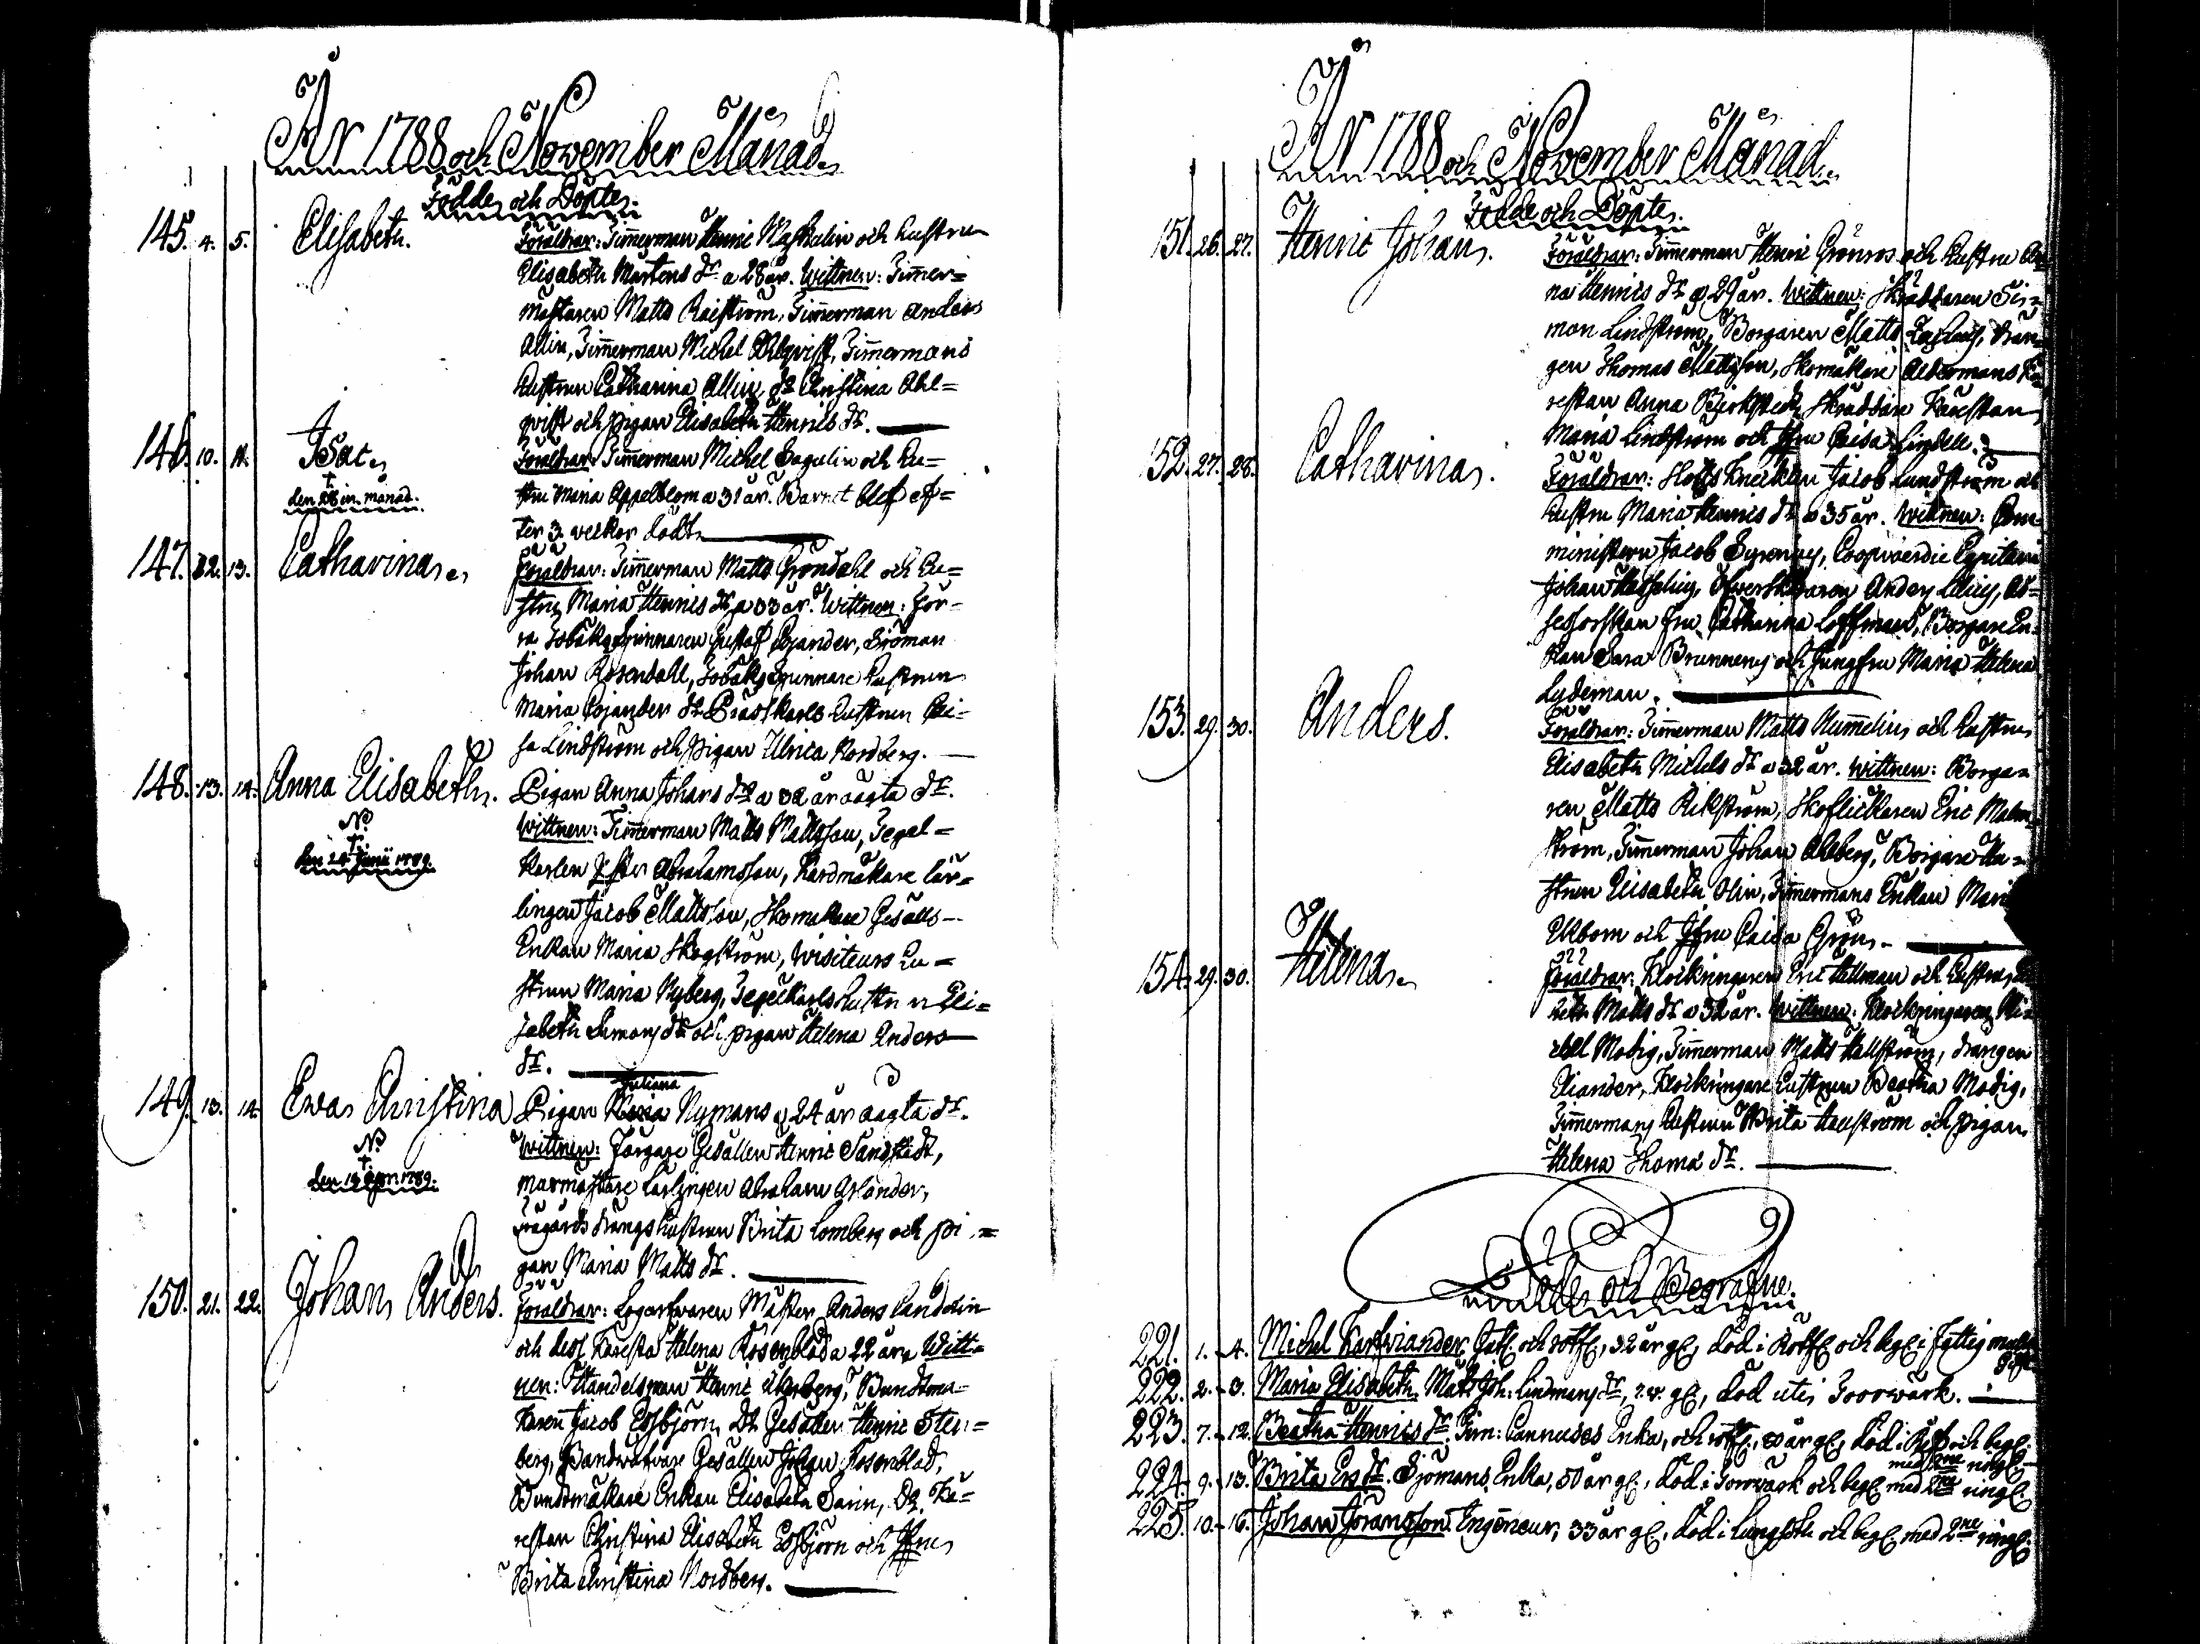 År 1788 och November Månad.
Födde och Döpte.
145. 4. 5. Elisabeth. Föräldrar: Timmerman Henric och hustrun
Elisabeth Mårtens dr a 28 år. Wittnen: Timer=
mästaren Matts Timmerman Anders
Allin, Timmerman Michel Ahlqvist, Timmermans
hustrun Catharina Allin, do Christina Ahl=
qvist och pigan Elisabeth Henrics dr.
146. 10. 11. Isac. Föräldrar: Timmerman Michel Sagulin och hu=
† den in. månad. stru Maria Appelblom a 31 år. Barnet blef ef=
ter 3 veckor dödt.
147. 12. 13. Catharina. Föräldrar: Timmerman Matts Gröndahl och hu=
stru Maria Henrics dr a 33 år. Wittnen: För=
ra Tobaks Spinnaren Gustaf Cojander, Sjöman
Johan Rosendahl, Tobaks Spinnare hustrun
Maria Cojander do hustrun Cai=
sa Lindström och pigan Ulrica Nordberg.
148. 13. 14. Anna Elisabeth. Pigan Anna Johans dr a 32 år oägta dr.
N. Wittnen: Timmerman Matts Mattsson, Segel=
† Karlen Abrahamsson, Kardmakare lär=
den 24 Junii 1789. lingen Jacob Mattsson, Skomakare Gesälls
Enkan Maria Skogström, Visiteurs hu=
strun Maria Nyberg, Segelkarls hustrun Eli=
sabeth Simons dr och pigan Helena Anders
dr.
149. 13. 14. Ewa Christina Pigan Juliana Nymans a 24 år oägta dr.
N. Wittnen: Färgare Gesällen Henric Sandstedt,
† Murmästare Lärlingen Abraham
den 1789. drängs hustrun Brita Lomberg och pi=
gan Maria Matts dr.
150. 21. 22. Johan Anders. Föräldrar: Mäster Anders Landelin
och dess Käresta Helena Rosenblad a 22 år. Witt=
nen: Handelsman Henric Åkerberg, Buntma=
karen Jacob Essbjörn, do Gesällen Henric Sten=
berg, Bandwäfvare Gesällen Johan Rosenblad,
Buntmakare Enkan Elisabeth Sarin, do Kä=
restan Christina Elisabeth Essbjörn och Jfrun
Brita Christina Nordberg.
År 1788 och November Månad.
Födde och Döpte.
151. 26. 27. Henric Johan. Föräldrar: Timmerman Henric Grönros och hustru An
na Henrics dr a 29 år. Wittnen: Skräddaren Si=
mon Lindström, Borgaren Matts drän
gen Thomas Mattsson, Skomakare Åldermans Kä
restan Anna Skräddare Kärestan
Maria Lindström och Jfru Caisa Lindell.
152. 27. 28. Catharina. Föräldrar: Jacob Lundström och
hustru Maria Henrics dr a 35 år. Wittnen: Com
ministern Jacob Coopvaerdie Capitain
Johan Anders As=
sessorskan fru Catharina Loffman, Borgare En
kan Sara och Jungfru Maria Helena
Lydeman.
153. 29. 30. Anders. Föräldrar: Timmerman Matts Nummelin och hustrun
Elisabeth Michels dr a 32 år. Wittnen: Borga=
ren Matts Rikström, Skoflickaren Eric Malm
ström, Timmerman Johan Ahlberg, Borgare hu=
strun Elisabeth Olin, Timmermans Enkan Mari
Ekbom och Jfru Caisa Grön.
154. 29. 30. Helena. Föräldrar: Klockringaren Eric Hellman och hustrun
beth Matts dr a 32 år. Wittnen: Klockringaren Mi
chel Modig, Timmerman Matts Hallström, drängen
Eliander, Klockringare hustrun Beatha Modig,
Timmermans hustrun Brita Hallström och pigan
Helena Thomæ dr.
Döde och Begrafne.
221. 1. 4. Michel 32 år gl, död i Rötf. och begr. i
222. 2. 8. Maria Elisabeth Joh: Lindmans dr, gl, död uti Torrvärk.
223. 7. 12. Beatha Henrics dr. Tim: Enka, 80 år gl, död i och begr.
med 2ne ringl.
224. 9. 13. Brita Ers dr. Sjömans Enka, 50 år gl, död i Torrvärk och begr. med 2ne ringl.
225. 10. 16. Johan Göransson. Ingeneur, 33 år gl, död i Lungsot och begr. med 2ne ringl.